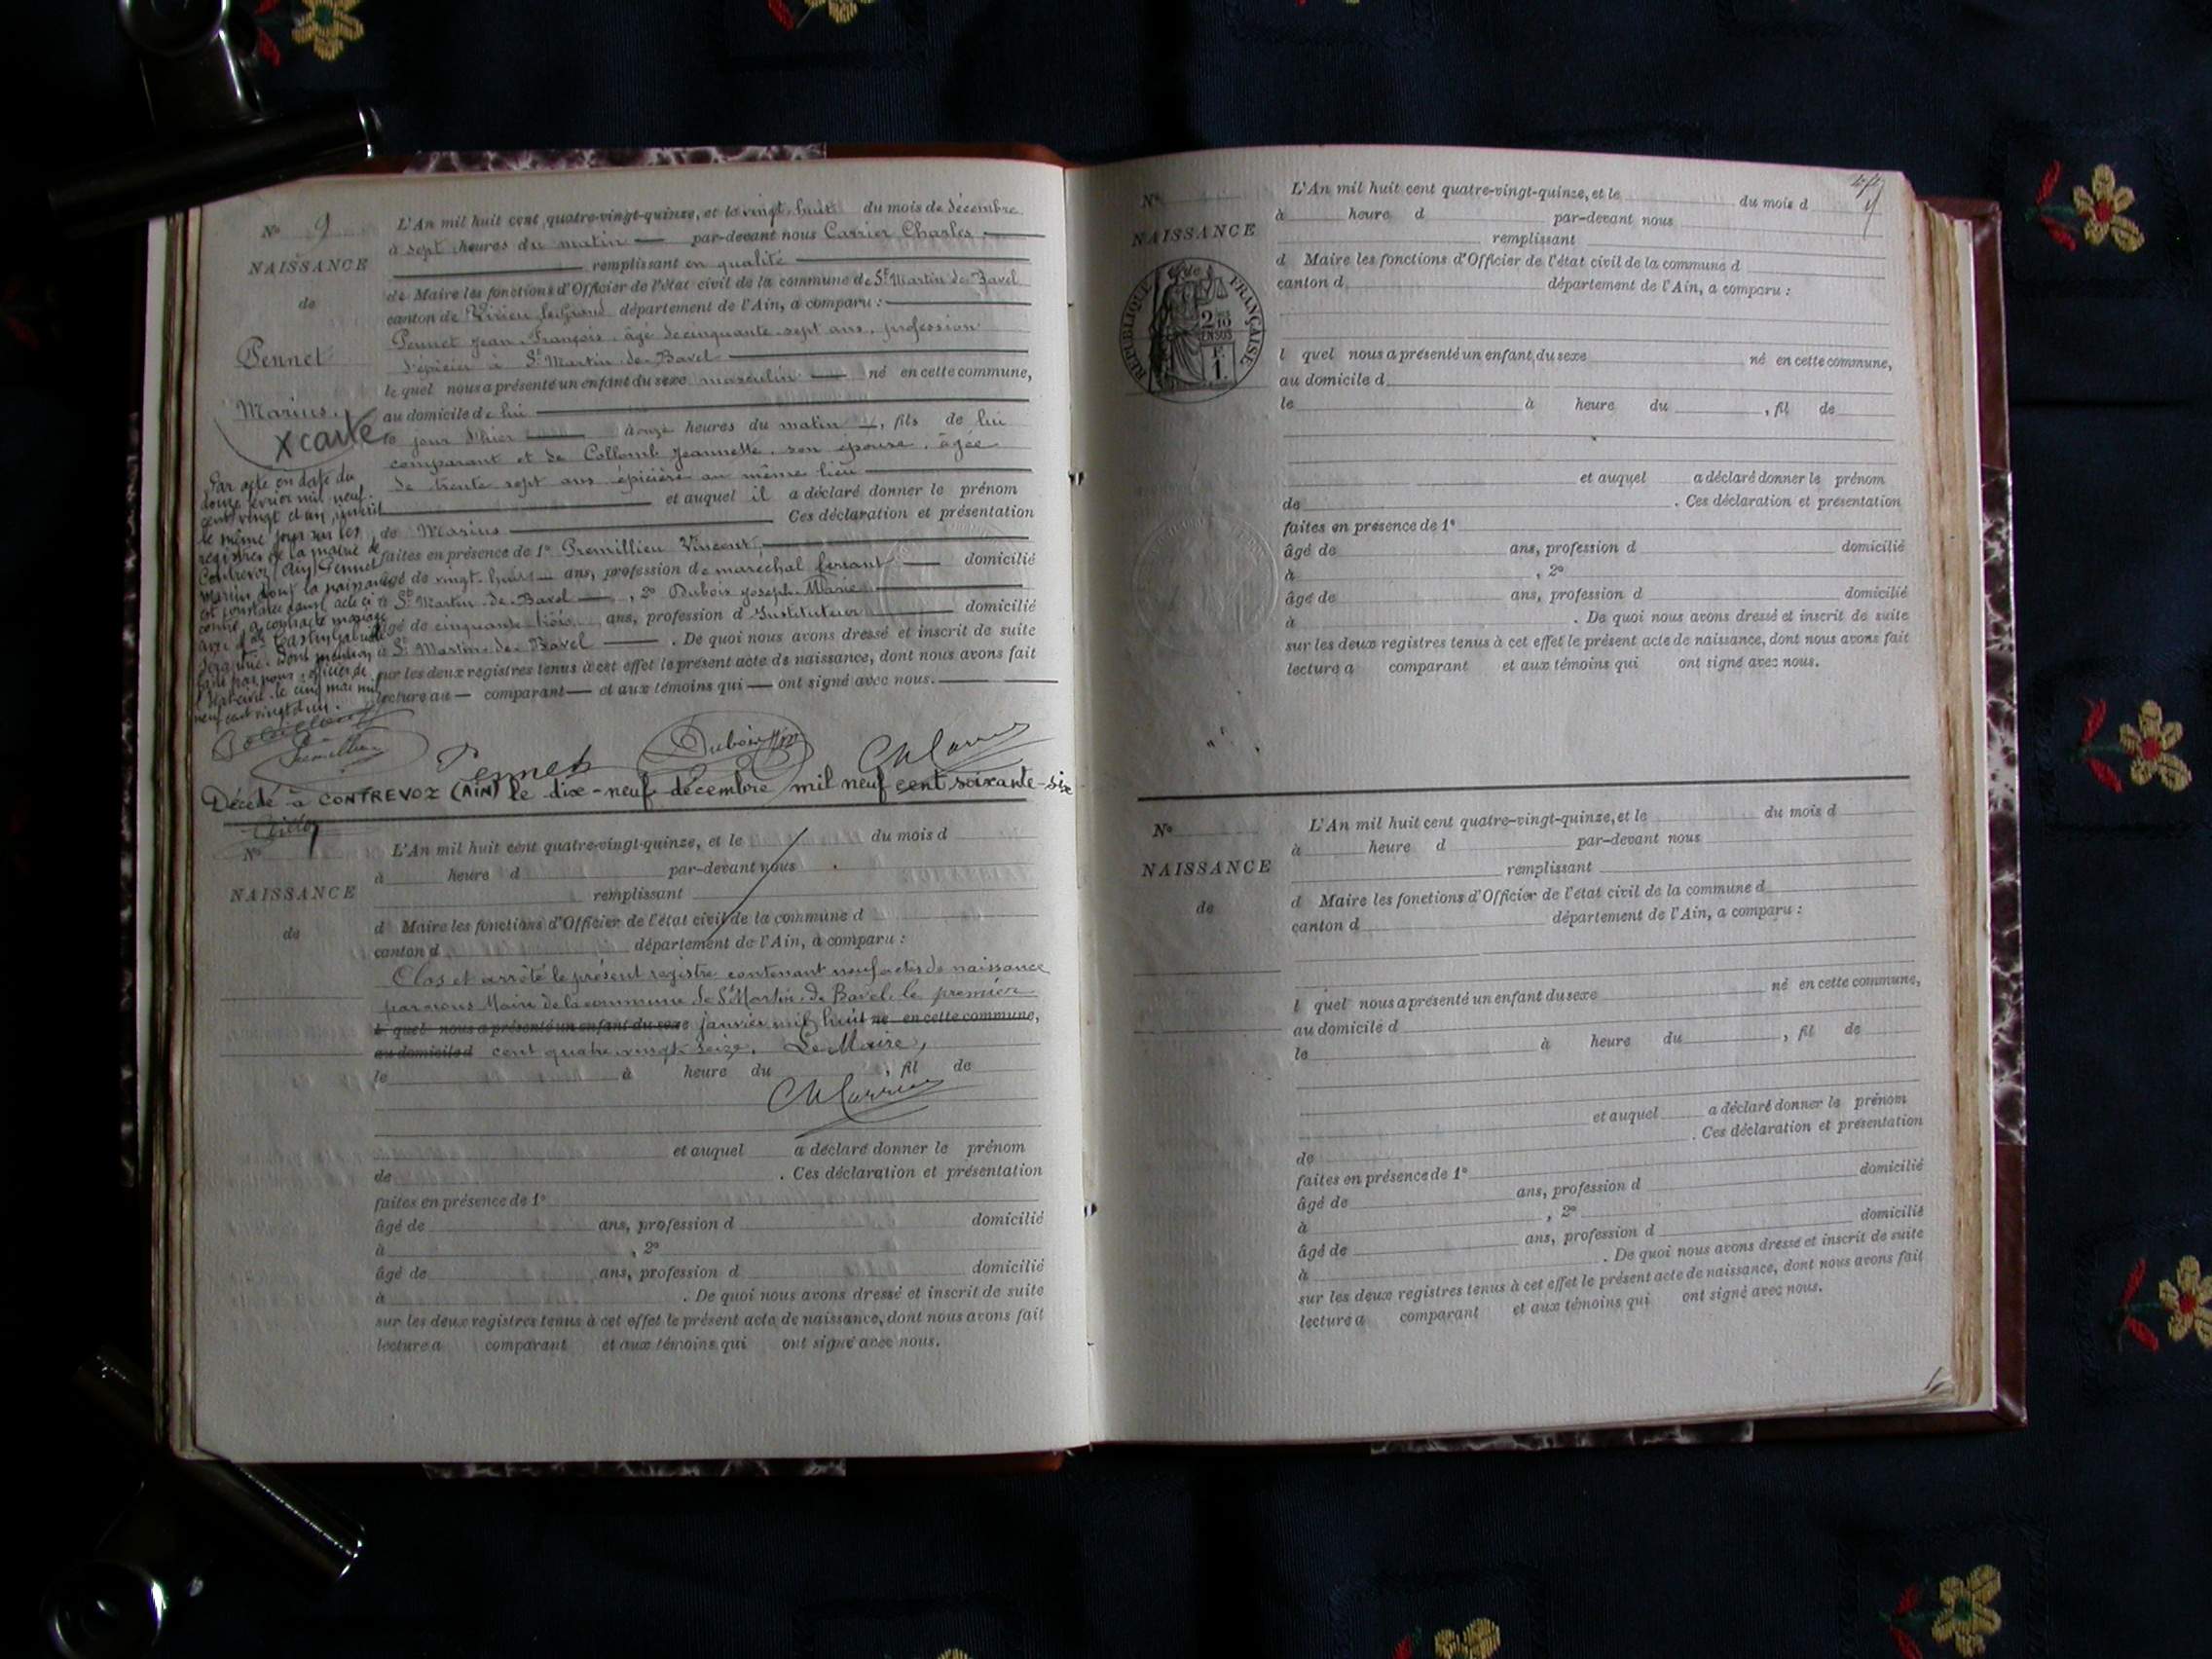 N° 9
NAISSANCE
de
Pennet
Marius.
X carte
L'An mil huit cent quatre-vingt-quinze, et le vingt-huit du mois de décembre
à sept heures du matin — par-devant nous Carrier Charles,
remplissant en qualité
de Maire les fonctions d'Officier de l'état civil de la commune de St Martin de Bavel
canton de Virieu-le-Grand département de l'Ain, a comparu :
Pennet Jean-François, âgé de cinquante-sept ans, profession
d'épicier à St Martin-de-Bavel
le quel nous a présenté un enfant du sexe masculin — né en cette commune,
au domicile de lui
le jour d'hier — à onze heures du matin —, fils de lui
comparant et de Collomb Jeannette, son épouse, âgée
de trente sept ans épicière au même lieu
et auquel il a déclaré donner le prénom
de Marius Ces déclaration et présentation
faites en présence de 1° Premillieu Vincent,
âgé de vingt-huit — ans, profession de maréchal ferrant — domicilié
à St Martin-de-Bavel —, 2° Dubois Joseph-Marie
âgé de cinquante trois ans, profession d'Instituteur domicilié
à St Martin-de-Bavel — . De quoi nous avons dressé et inscrit de suite
sur les deux registres tenus à cet effet le présent acte de naissance, dont nous avons fait
lecture au — comparant — et aux témoins qui — ont signé avec nous.
Par acte en date du
douze février mil neuf
cent vingt et un, inscrit
le même jour sur les
registres de la mairie de
Contrevoz (Ain) Pennet
Marius dont la naissance
est constatée dans l'acte ci
contre, a contracté mariage
avec
dont mention
faite par nous, officier de
l'état-civil le cinq mai mil
neuf cent vingt et un.
Premillieu
Pennet
Dubois
Ch Carrier
Décédé à CONTREVOZ (AIN) le dix-neuf décembre mil neuf cent soixante-six
N°
NAISSANCE
de
L'An mil huit cent quatre-vingt-quinze, et le du mois d
à heure d par-devant nous
remplissant
d Maire les fonctions d'Officier de l'état civil de la commune d
canton d département de l'Ain, a comparu :
Clos et arrêté le présent registre contenant neuf actes de naissance
par nous Maire de la commune de St Martin-de-Bavel, le premier
l quel nous a présenté un enfant du sexe janvier mil huit né en cette commune,
au domicile d cent quatre-vingt-seize. Le Maire,
le à heure du , fil de
Ch Carrier
et auquel a déclaré donner le prénom
de . Ces déclaration et présentation
faites en présence de 1°
âgé de ans, profession d domicilié
à , 2°
âgé de ans, profession d domicilié
à . De quoi nous avons dressé et inscrit de suite
sur les deux registres tenus à cet effet le présent acte de naissance, dont nous avons fait
lecture a comparant et aux témoins qui ont signé avec nous.
N°
NAISSANCE
de
RÉPUBLIQUE FRANÇAISE
2/10
EN SUS
1
L'An mil huit cent quatre-vingt-quinze, et le du mois d
à heure d par-devant nous
remplissant
d Maire les fonctions d'Officier de l'état civil de la commune d
canton d département de l'Ain, a comparu :
l quel nous a présenté un enfant du sexe né en cette commune,
au domicile d
le à heure du , fil de
et auquel a déclaré donner le prénom
de . Ces déclaration et présentation
faites en présence de 1°
âgé de ans, profession d domicilié
à , 2°
âgé de ans, profession d domicilié
à . De quoi nous avons dressé et inscrit de suite
sur les deux registres tenus à cet effet le présent acte de naissance, dont nous avons fait
lecture a comparant et aux témoins qui ont signé avec nous.
N°
NAISSANCE
de
L'An mil huit cent quatre-vingt-quinze, et le du mois d
à heure d par-devant nous
remplissant
d Maire les fonctions d'Officier de l'état civil de la commune d
canton d département de l'Ain, a comparu :
l quel nous a présenté un enfant du sexe né en cette commune,
au domicile d
le à heure du , fil de
et auquel a déclaré donner le prénom
de . Ces déclaration et présentation
faites en présence de 1°
âgé de ans, profession d domicilié
à , 2°
âgé de ans, profession d domicilié
à . De quoi nous avons dressé et inscrit de suite
sur les deux registres tenus à cet effet le présent acte de naissance, dont nous avons fait
lecture a comparant et aux témoins qui ont signé avec nous.